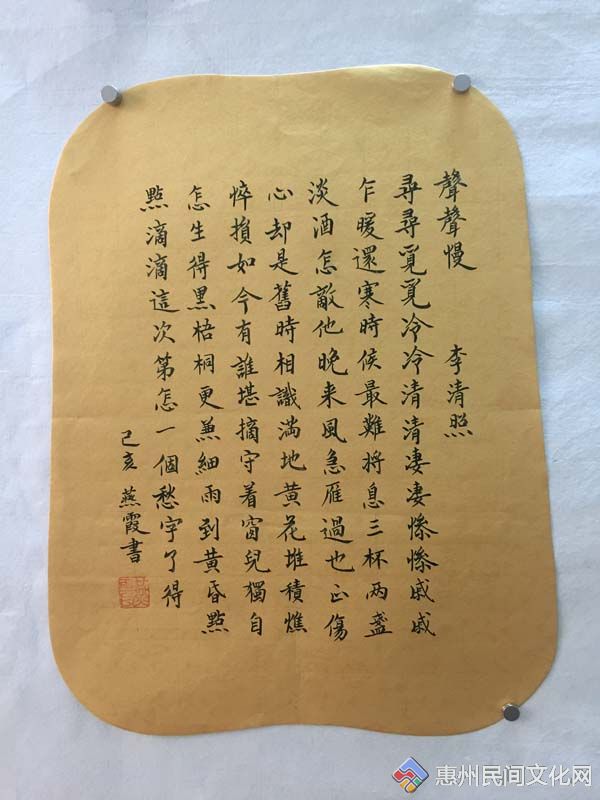 聲聲慢 李清照
尋尋覓覓冷冷清清凄凄慘慘戚戚
乍暖還寒時候最難將息三杯兩盞
淡酒怎敵他晚来風急雁過也正傷
心却是舊時相識满地黄花堆積憔
悴損如今有誰堪摘守着窗兒獨自
怎生得黑梧桐更兼細雨到黄昏點
點滴滴這次第怎一個愁字了得
己亥 燕霞書
惠州民间文化网